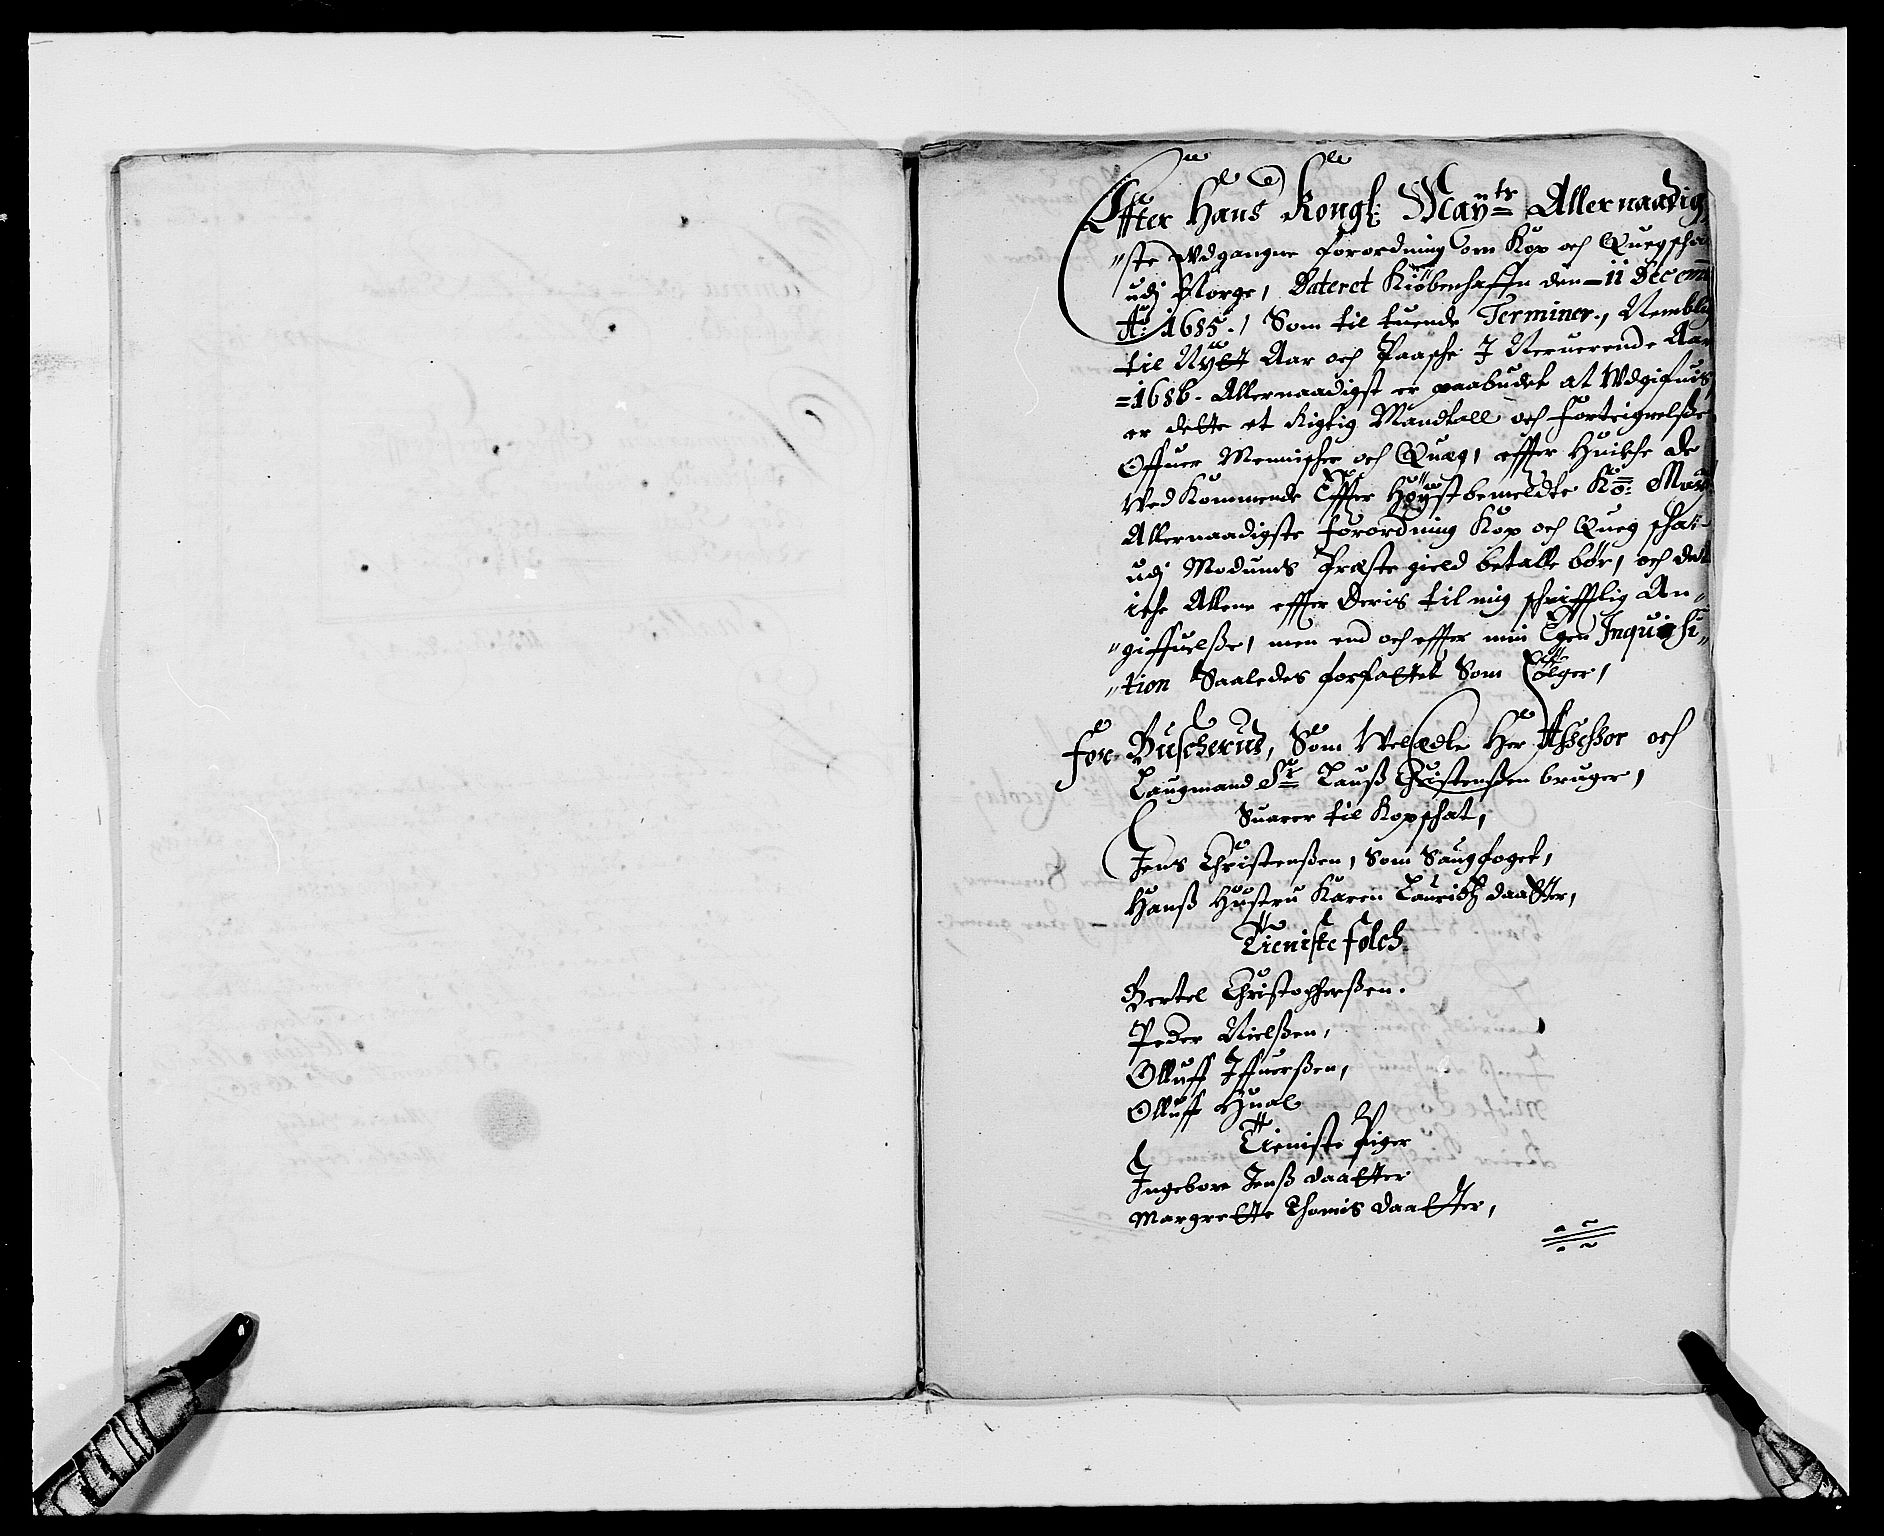 Effter Hans Kongl: Mayts Allernaadig
"ste Udgangne forordning om Kop och Quegschat
udj Norge, Dateret Kiöbenhaffn den - 11 Decemb
Ao: 1685., Som til tuende Terminer., Nemblig
til Nytt Aar och Paasche J Neruerende Aar
=1686. Allernaadigst er paabudet at Udgifuis,
er dette et Rigtig Mandtall och forteignelsße
Offuer Mennischer och Queg, effter Huilche de
Vedkommende Effter Höystbemeldte Ko: May
Allernaadigste forordning Kop och Queg schat
udj Modums Præste gield betalle bör, och det
iche Allene effter Deris til mig schrifftlig An"
"giffuelsße, men end och effter min Egen Inquisi"
"tion Saaledes forfattet Som fölger,
for Buscherud, Som Velædle Her Assessor och
Laugmand Sr Lauß Christenßen bruger,
Suarer til Kopschat,
Jens Christenßen, Som Saugfoget,
Hanß Hustru Karen Lauridtz daatter,
Tieniste folch
Bertel Christopherßen.
Peder Nielßen,
Olluff Iffuerßen,
Olluff Hual
Tieniste Piger
Ingebore Jenß daatter
Margrette Thomis daatter,